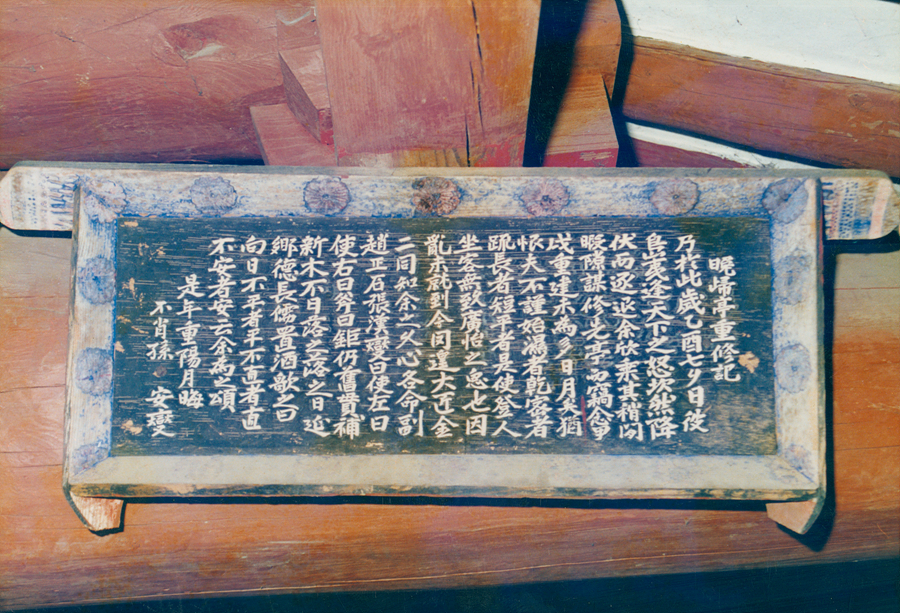 晚歸亭重修記
乃於此歲乙酉七夕日後
島夷逢天下之怒坎然降
伏而逐返余欣来其稍閒
暇陳謀修先亭而竊念爭
戊重建未為多日月夫猶
恨夫不謹始漏者乾窓者
疏長者短平者是使登人
坐客無致廣怡之急七因
亂未就到今囘運大正金
二同知余之久心各命副
趙正石張漢燮曰使左曰
使右曰斧曰鉅仍舊貫補
新木不月落之落之日近
鄉德長儒置酒歌之曰
向日不平者平不直者直
不安者安云余為之頌
是年重陽月晦
不肖孫 安燮